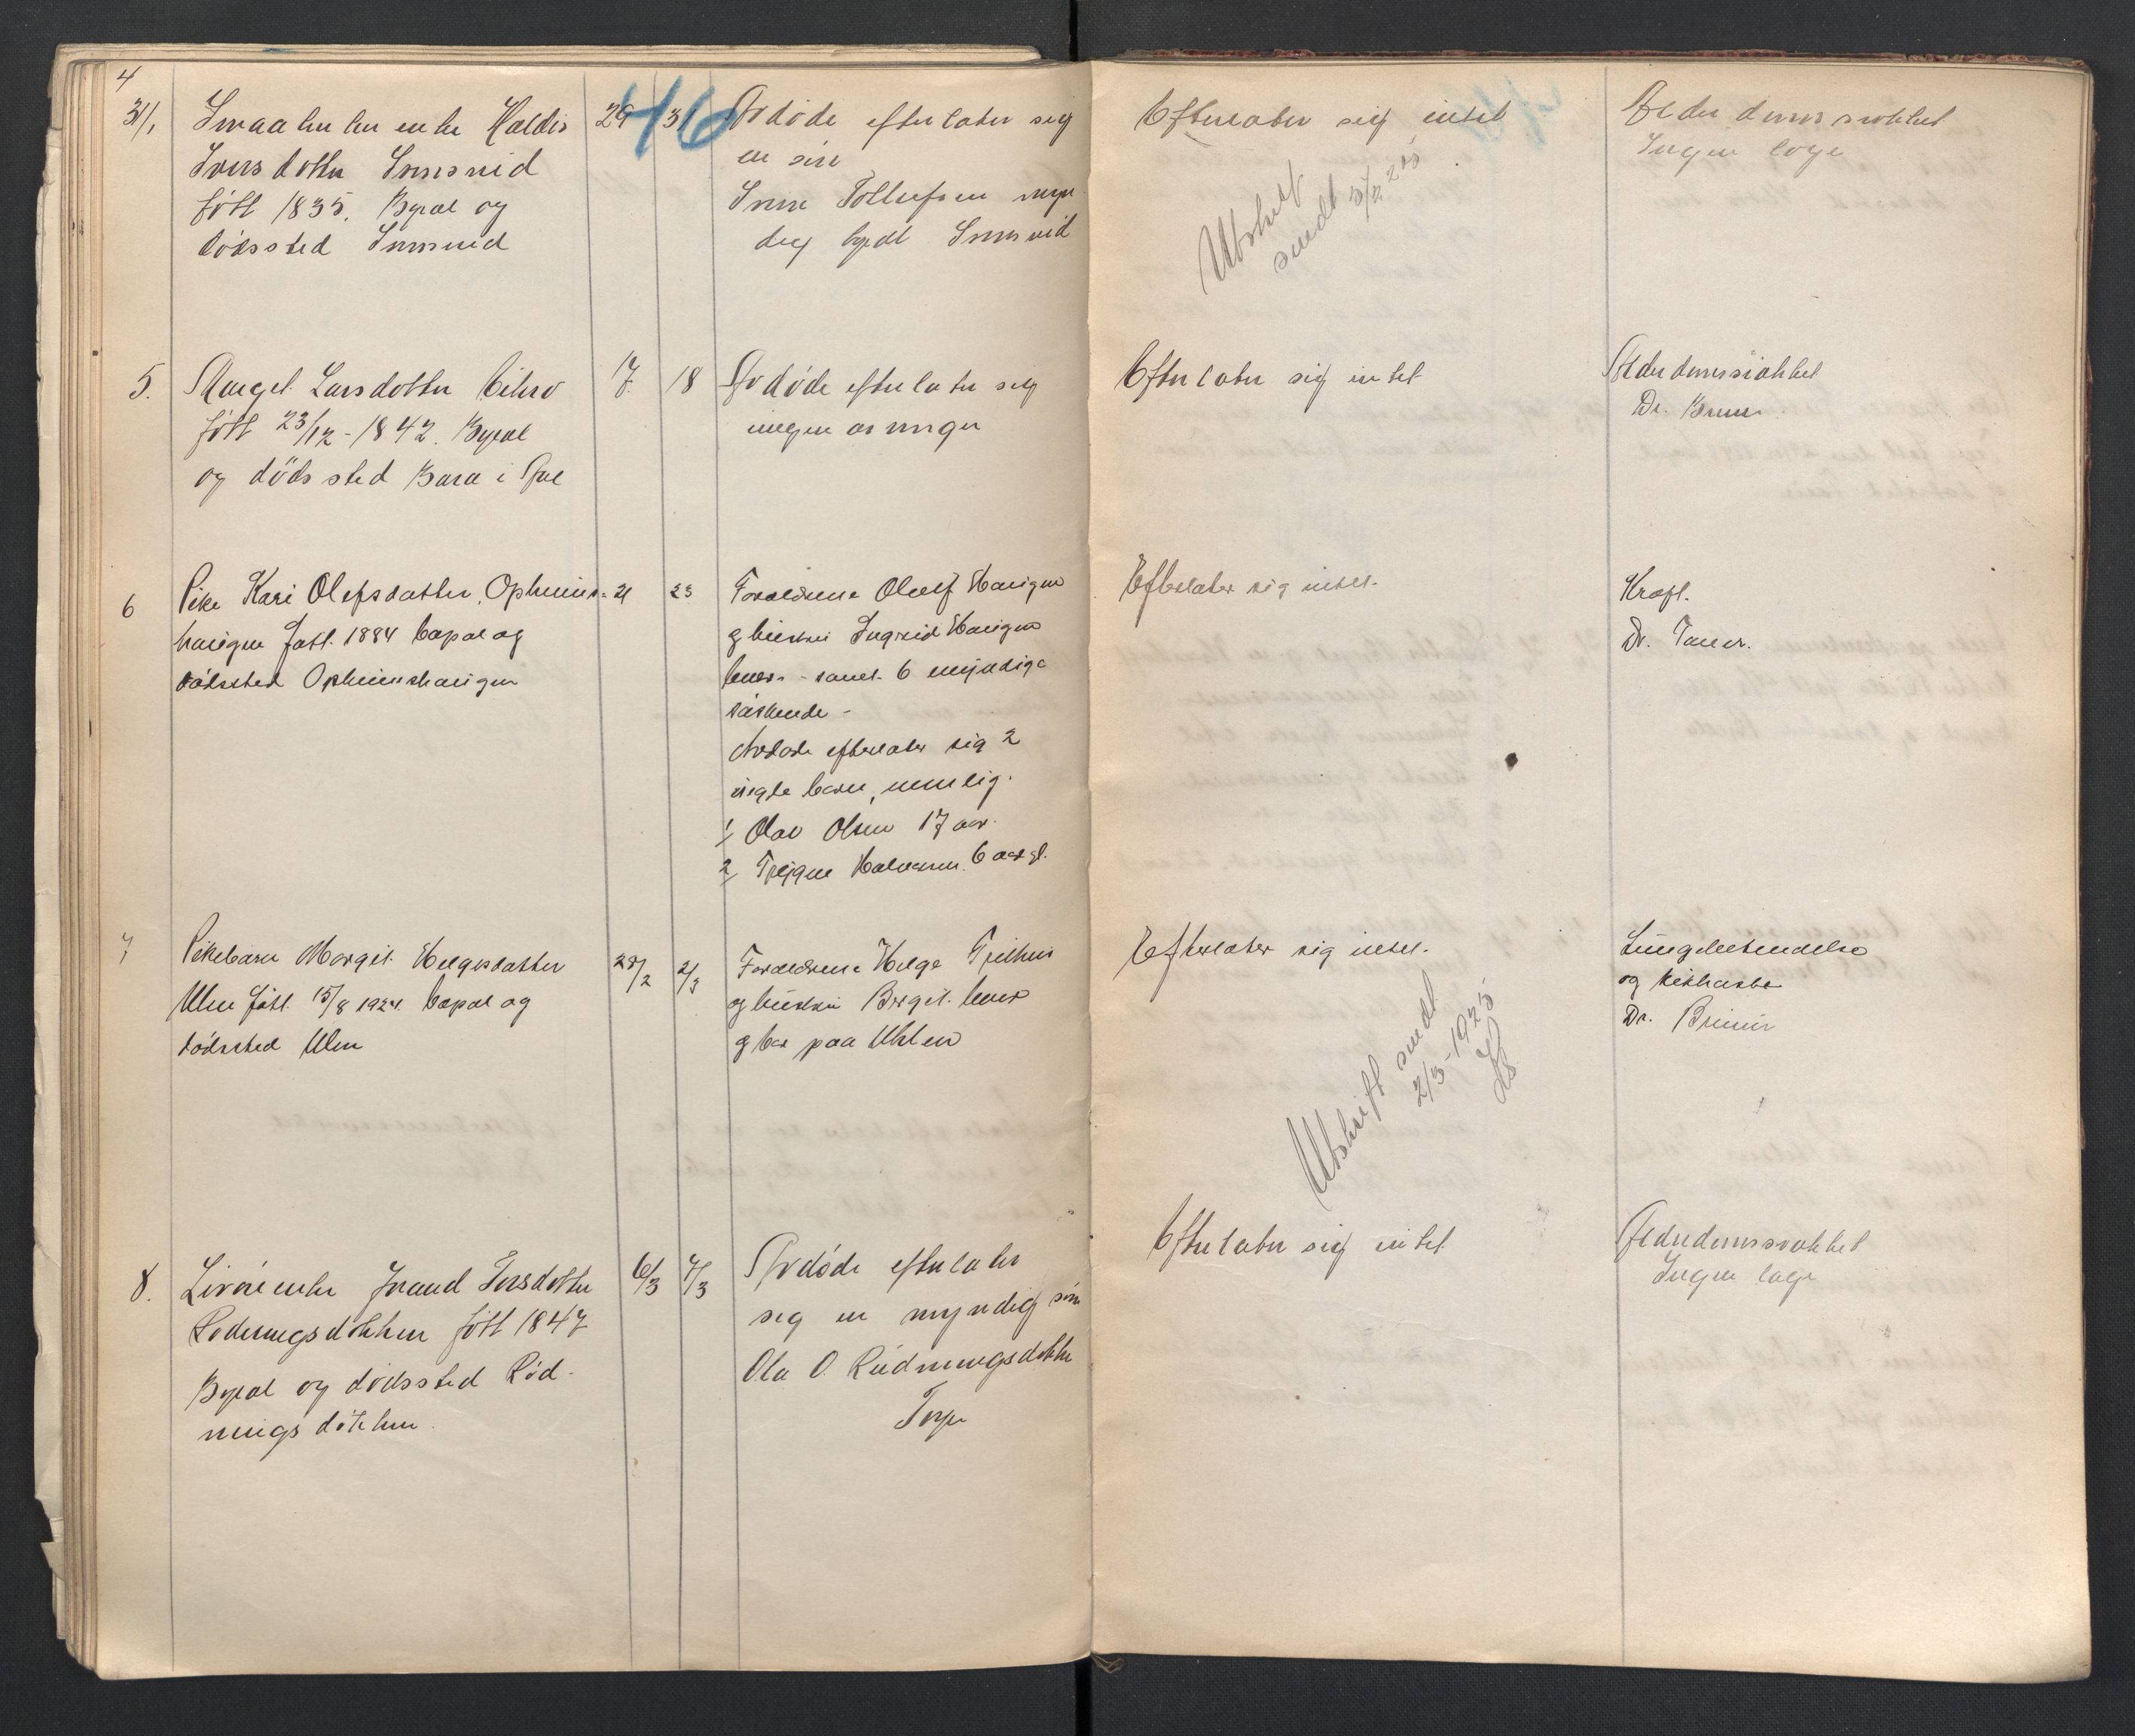 4
31/1
Smaabrukerenke Haldis
Iversdotter
født 1835. Bopæl og
dødssted
29
46
31
Avdøde efterlater seg
en søn
Tollefsen myn
dig bopæl
Efterlater sig intet
Utskrift
sendt 3/2 25
Alderdomssvakhet
Ingen læge
5.
Margit Larsdotter
født 23/12 - 1842. Bopæl
og dødssted Bara i Aal
17
18
Avdøde efterlater seg
ingen arvinger
Efterlater sig intet
Alderdomssvakhet
Dr.
6
Pike Kari Olefsdatter, Opheims-
haugen født 1884 bopæl og
dødssted Opheimshaugen
21
23
Forældrene Oluf Haugen
og hustru Ingrid Haugen
lever - samt 6 myndige
søskende -
Avdøde efterlater sig 2
uegte barn, nemlig.
1/ Olav Olsen 17 aar.
2/ Trygve Halvorsen 6 aar gl.
Efterlater sig intet.
Kræft.
Dr.
7
Pikebarn Margit Helgesdatter
Ulen født 15/8 1924. bopæl og
dødssted Ulen
28/2
2/3
Forældrene Helge
og hustru Birgit lever
og bor paa Uhlen
Efterlater sig intet.
Utskrift sendt
2/3 - 1925
Lungebetendelse
og kikhoste
Dr.
8.
Livøreenke Jøraand Torsdotter
Rødningsdokken født 1847
Bopæl og dødssted Rød-
ningsdokken
6/3
7/3
Avdøde efterlater
seg en myndig søn
Ola O. Rudningsdokken
Torpe
Efterlater sig intet
Alderdomssvakhet
Ingen læge